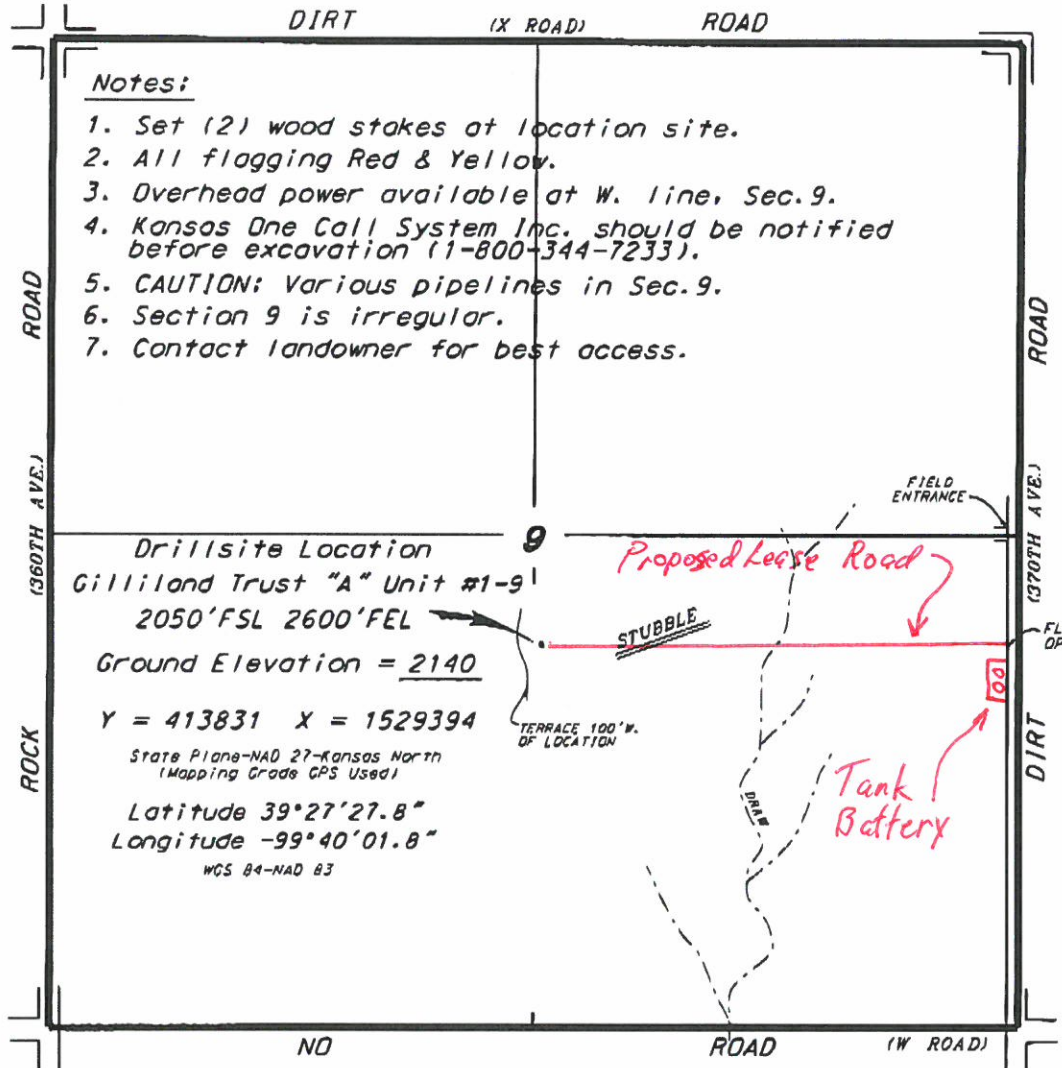 DIRT (X ROAD) ROAD
Notes:
1. Set (2) wood stakes at location site.
2. All flagging Red & Yellow.
3. Overhead power available at W. line, Sec. 9.
4. Kansas One Call System Inc. should be notified
before excavation (1-800-344-7233).
5. CAUTION: Various pipelines in Sec. 9.
6. Section 9 is irregular.
7. Contact landowner for best access.
ROAD
(360TH AVE.)
ROCK
ROAD
(370TH AVE.)
DIRT
FIELD
ENTRANCE
9
Drillsite Location
Gilliland Trust "A" Unit #1-9
2050'FSL 2600'FEL
Ground Elevation = 2140
Y = 413831 X = 1529394
State Plane-NAD 27-Kansas North
(Mapping Grade GPS Used)
Latitude 39°27'27.8"
Longitude -99°40'01.8"
WGS 84-NAD 83
Proposed Lease Road
STUBBLE
FL
OP
TERRACE 100'W.
OF LOCATION
DRAW
Tank
Battery
NO ROAD (W ROAD)